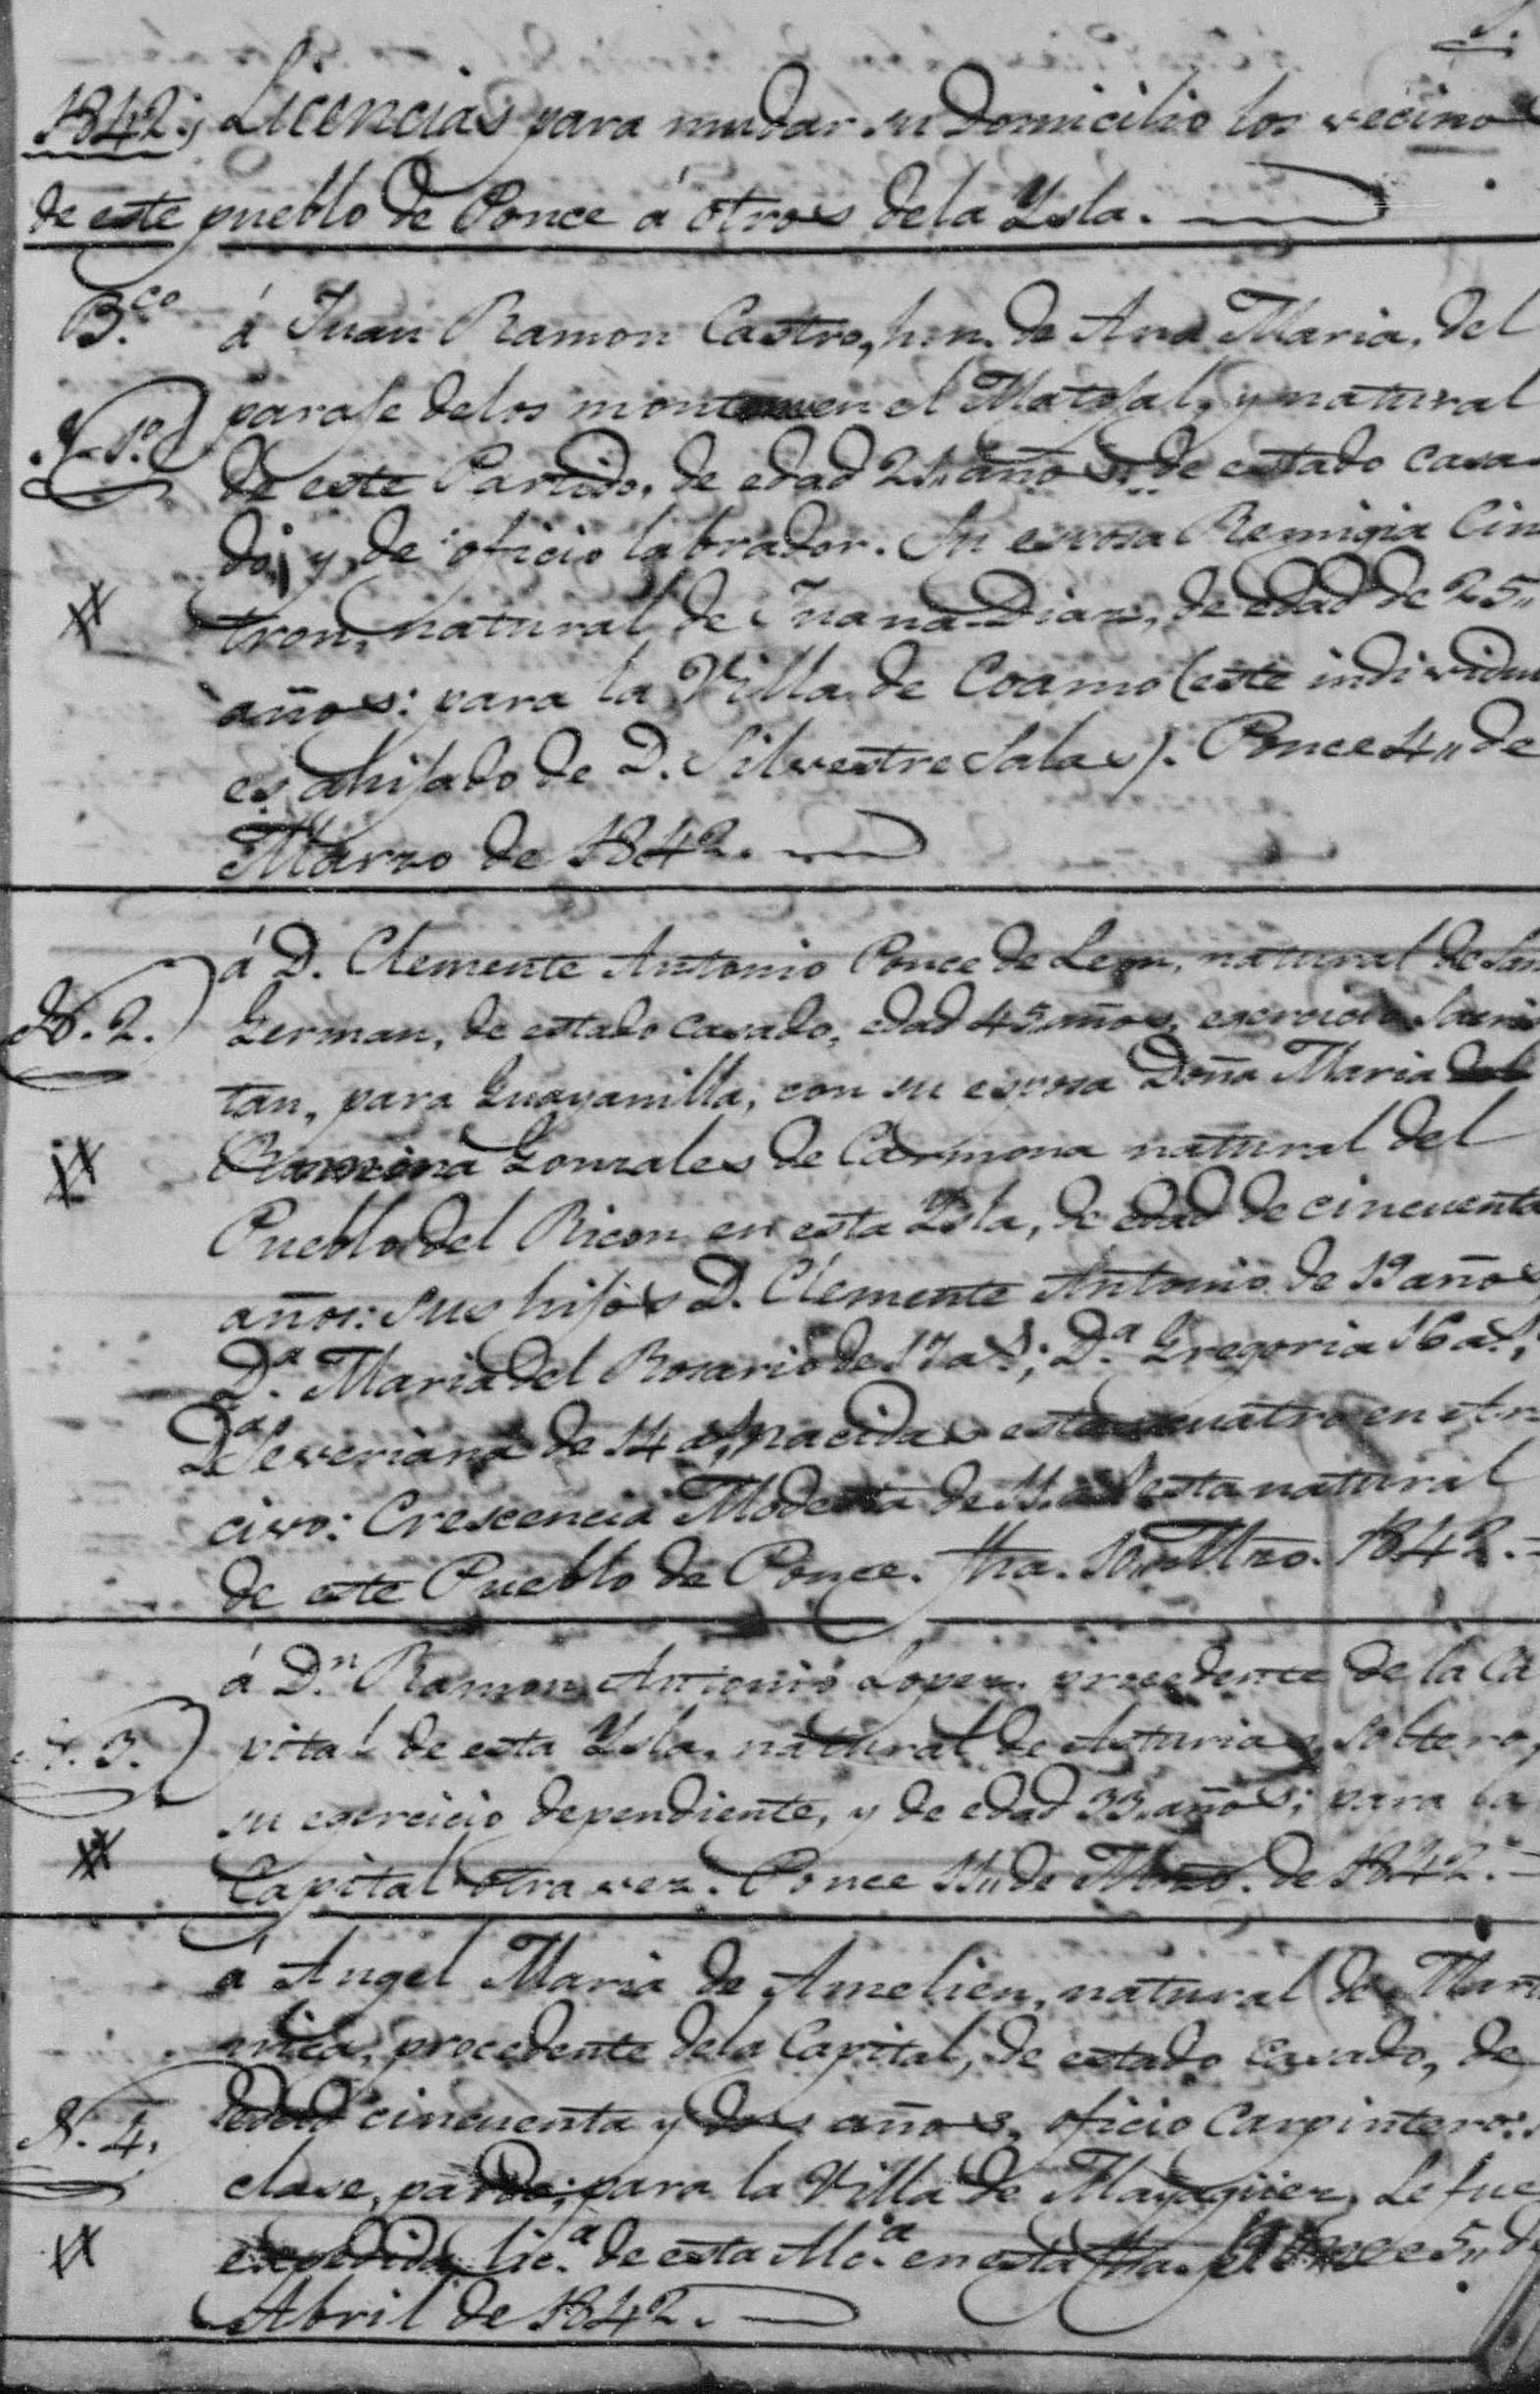 1842; Licencias para mudar su Domicilio los vecinos
de este pueblo de Ponce á otros dela Ysla.
B.co á Juan Ramon Castro, hm. de Ana Maria, del
N. 1.o paraje delos montes en el Matojal, y natural
de este Partido, de edad 21,, años, de estado casa
do; y de oficio labrador. Su esposa Remigia Cin
tron, natural de Juana Diaz, de edad de 25,,
años: para la Villa de Coamo (este individuo
es ahijado de D. Silvestre Salas). Ponce 4,, de
Marzo de 1842.
á D. Clemente Antonio Ponce de Leon, natural de San
N. 2. German, de estado casado, edad 45 años, egercicio Sacris
tan, para Guayanilla, con su esposa Doña Maria
Gonzales de Carmona natural del
Pueblo del Ricon en esta Ysla, de edad de cincuenta
años: sus hijos D. Clemente Antonio de 19 años
D.a Maria del Rosario de 17 a.s; D.a Gregoria 16 a.s,
D.a Severiana de 14 a.s, nacidas estas cuatro en Are
civo: Crescencia Modesta de 11 a.s esta natural
de este Pueblo de Ponce. fha. 10,, Mzo. 1842.
á D.n Ramon Antonio Lopez, procedente de la Ca
N. 3. pital de esta Ysla, natural de Asturias, soltero,
su egercicio dependiente, y de edad 33,, años; para la
Capital otra vez. Ponce 11,, de Mzo. de 1842.
á Angel Maria de Amelien, natural de Mart
inica, procedente dela Capital, de estado casado, de
N. 4. edad cincuenta y dos años, oficio Carpintero:
clase, pardo; para la Villa de Mayagüez, Le fue
expedida lic.a de esta Alc.a en esta fha. Ponce 5,, de
Abril de 1842.